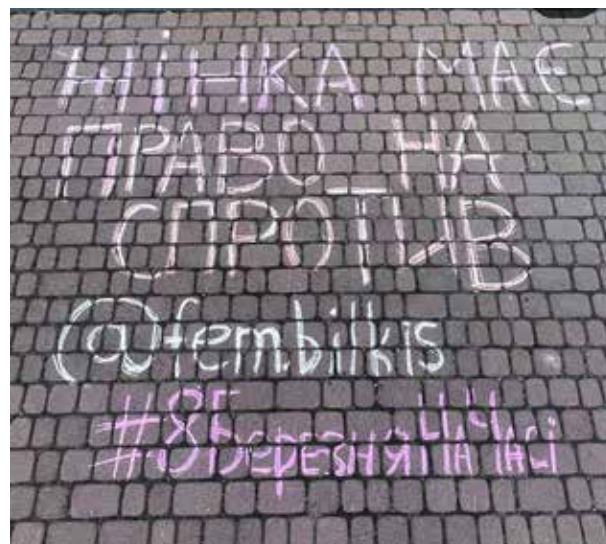 ЖІНКА МАЄ
ПРАВО НА
СПРОТИВ
@fem.bilkis
#8БерезняНаЧасі